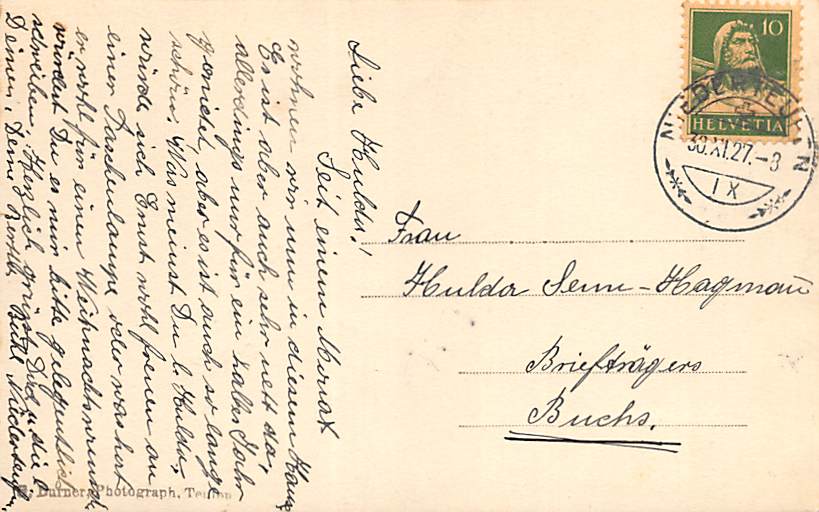 Liebe Hulda!
Seit einem Monat
wohnen wir nun in diesem Haus
Es ist aber auch sehr nett da,
allerdings nur für ein halbes Jahr
gemietet, aber es ist auch so lange
schön. Was meinst Du l. Hulda,
würde sich Ernst wohl freuen an
einer Taschenlampe oder was hat
er wohl für einen Weihnachtswunsch
würdest Du es mir bitte gelegentlich
schreiben. Herzlich grüsst Dich u. die l.
Deinen, Deine Bertha Bühl Niederteufen
10
HELVETIA
NIEDERTEUFEN
30.XI.27.-8
IX
Frau
Hulda Senn-Hagmann
Briefträgers
Buchs.
Burner, Photograph, Teufen